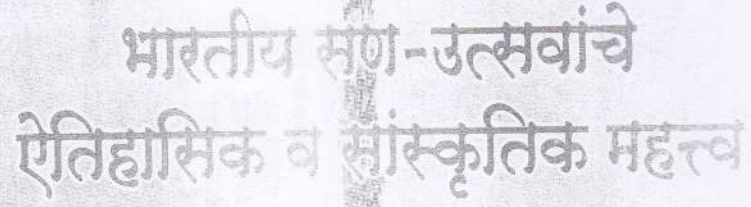 भारतीय सण-उत्सवांचे
ऐतिहासिक व सांस्कृतिक महत्त्व